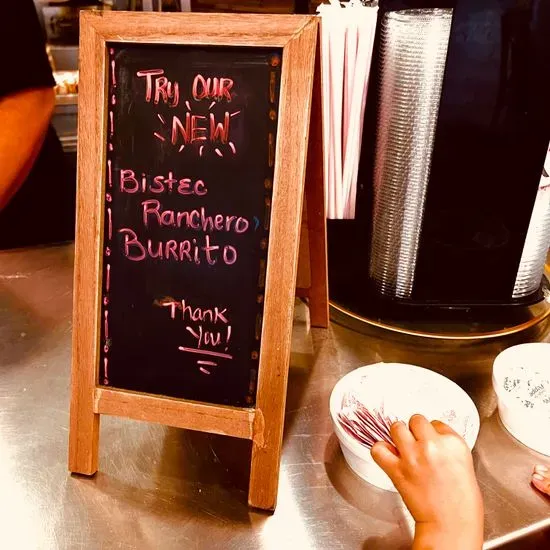 Try OUR
NEW
Bistec
Ranchero
Burrito
Thank
You!